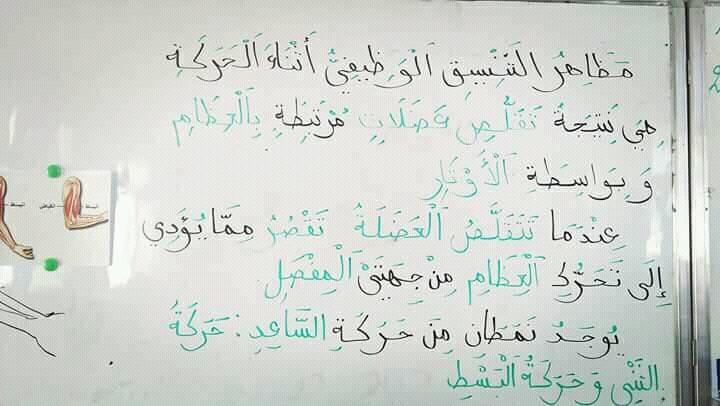 مَظَاهِرُ التَّنْسِيقِ الْوَظِيفِيُّ أَثْنَاءَ الْحَرَكَةِ
هِيَ نَتِيجَةُ تَقَلُّصِ عَضَلَاتٍ مُرْتَبِطَةٍ بِالْعِظَامِ
وَ بِوَاسِطَةِ الْأَوْتَارِ
عِنْدَمَا تَتَقَلَّصُ الْعَضَلَةُ تَقْصُرُ مِمَّا يُؤَدِي
إِلَى تَحَرُّكِ الْعِظَامِ مِنْ جِهَتَيْ الْمِفْصَلِ
يُوجَدُ نَمَطَانِ مِنَ حَرَكَةِ السَّاعِدِ : حَرَكَةُ
الثَّنْيِ وَ حَرَكَةُ الْبَسْطِ